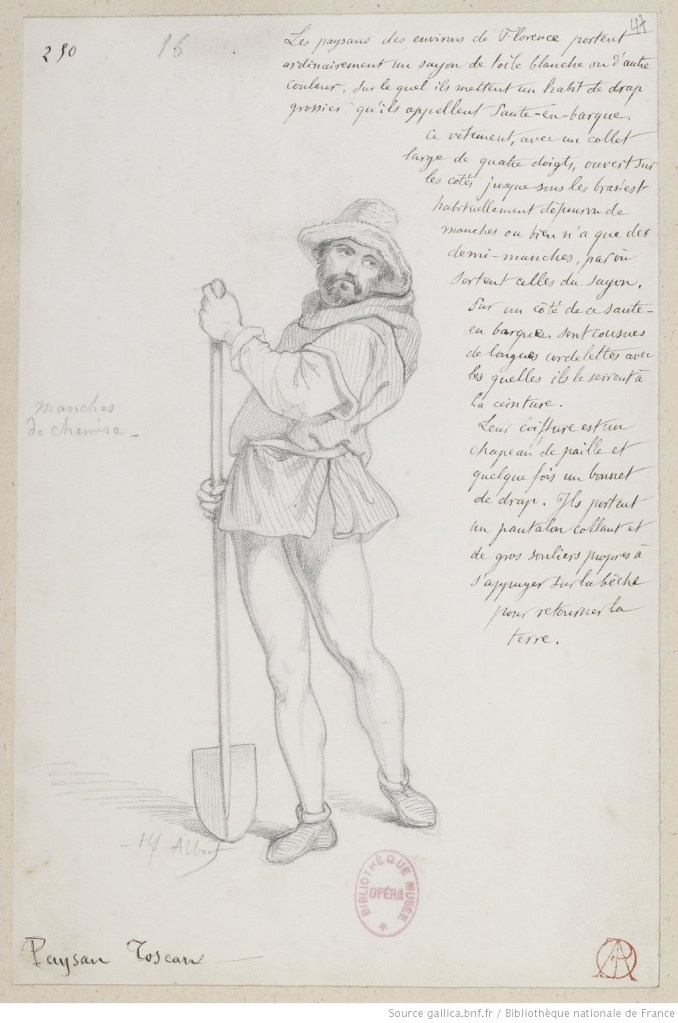 250
16
47
Les paysans des environs de Florence portent
ordinairement un sayon de toile blanche ou d'autre
couleur, sur le quel ils mettent un habit de drap
grossier qu'ils appellent Saute-en-barque.
Ce vêtement, avec un collet
large de quatre doigts, ouvert sur
les côtés jusque sous les bras est
habituellement dépourvu de
manches ou bien n'a que des
demi-manches, par où
sortent celles du sayon.
Sur un côté de ce saute-
en barque sont cousues
de longues cordelettes avec
les quelles ils le serrent à
la ceinture.
Leur coiffure est un
chapeau de paille et
quelque fois un bonnet
de drap. Ils portent
un pantalon collant et
de gros souliers propres à
s'appuyer sur la bêche
pour retourner la
terre.
manches
de chemise
Alf Albert
BIBLIOTHÈQUE MUSÉE
OPÉRA
Paysan Toscan
Source gallica.bnf.fr / Bibliothèque nationale de France